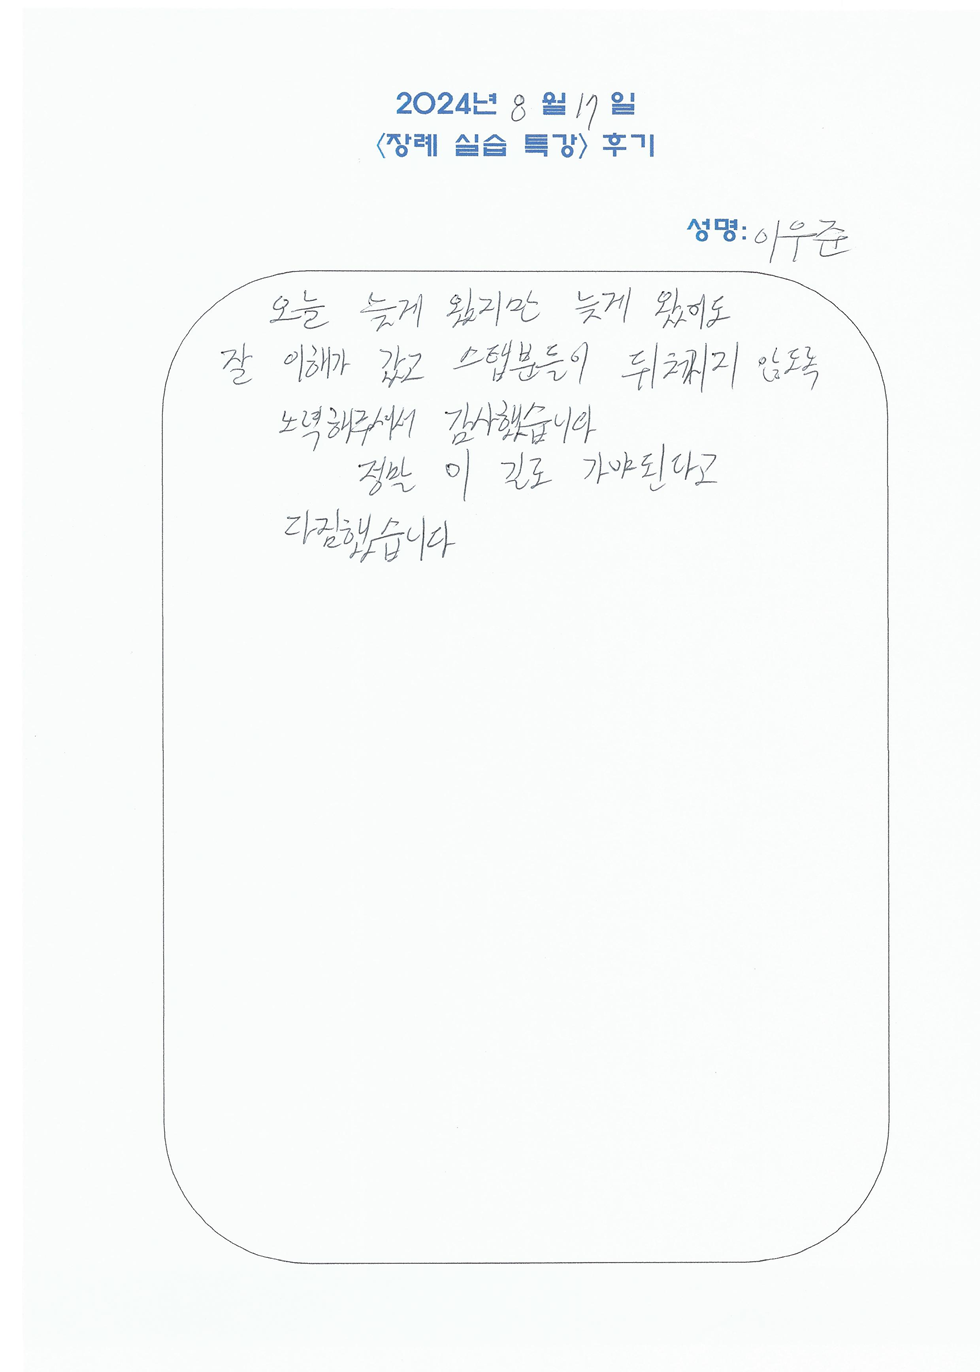 2024년 8월 17일
<장례 실습 특강> 후기
성명: 이우준
오늘 늦게 왔지만 늦게 왔어도
잘 이해가 갔고 스탭분들이 뒤쳐지지 않도록
노력해주셔서 감사했습니다
정말 이 길로 가야된다고
다짐했습니다